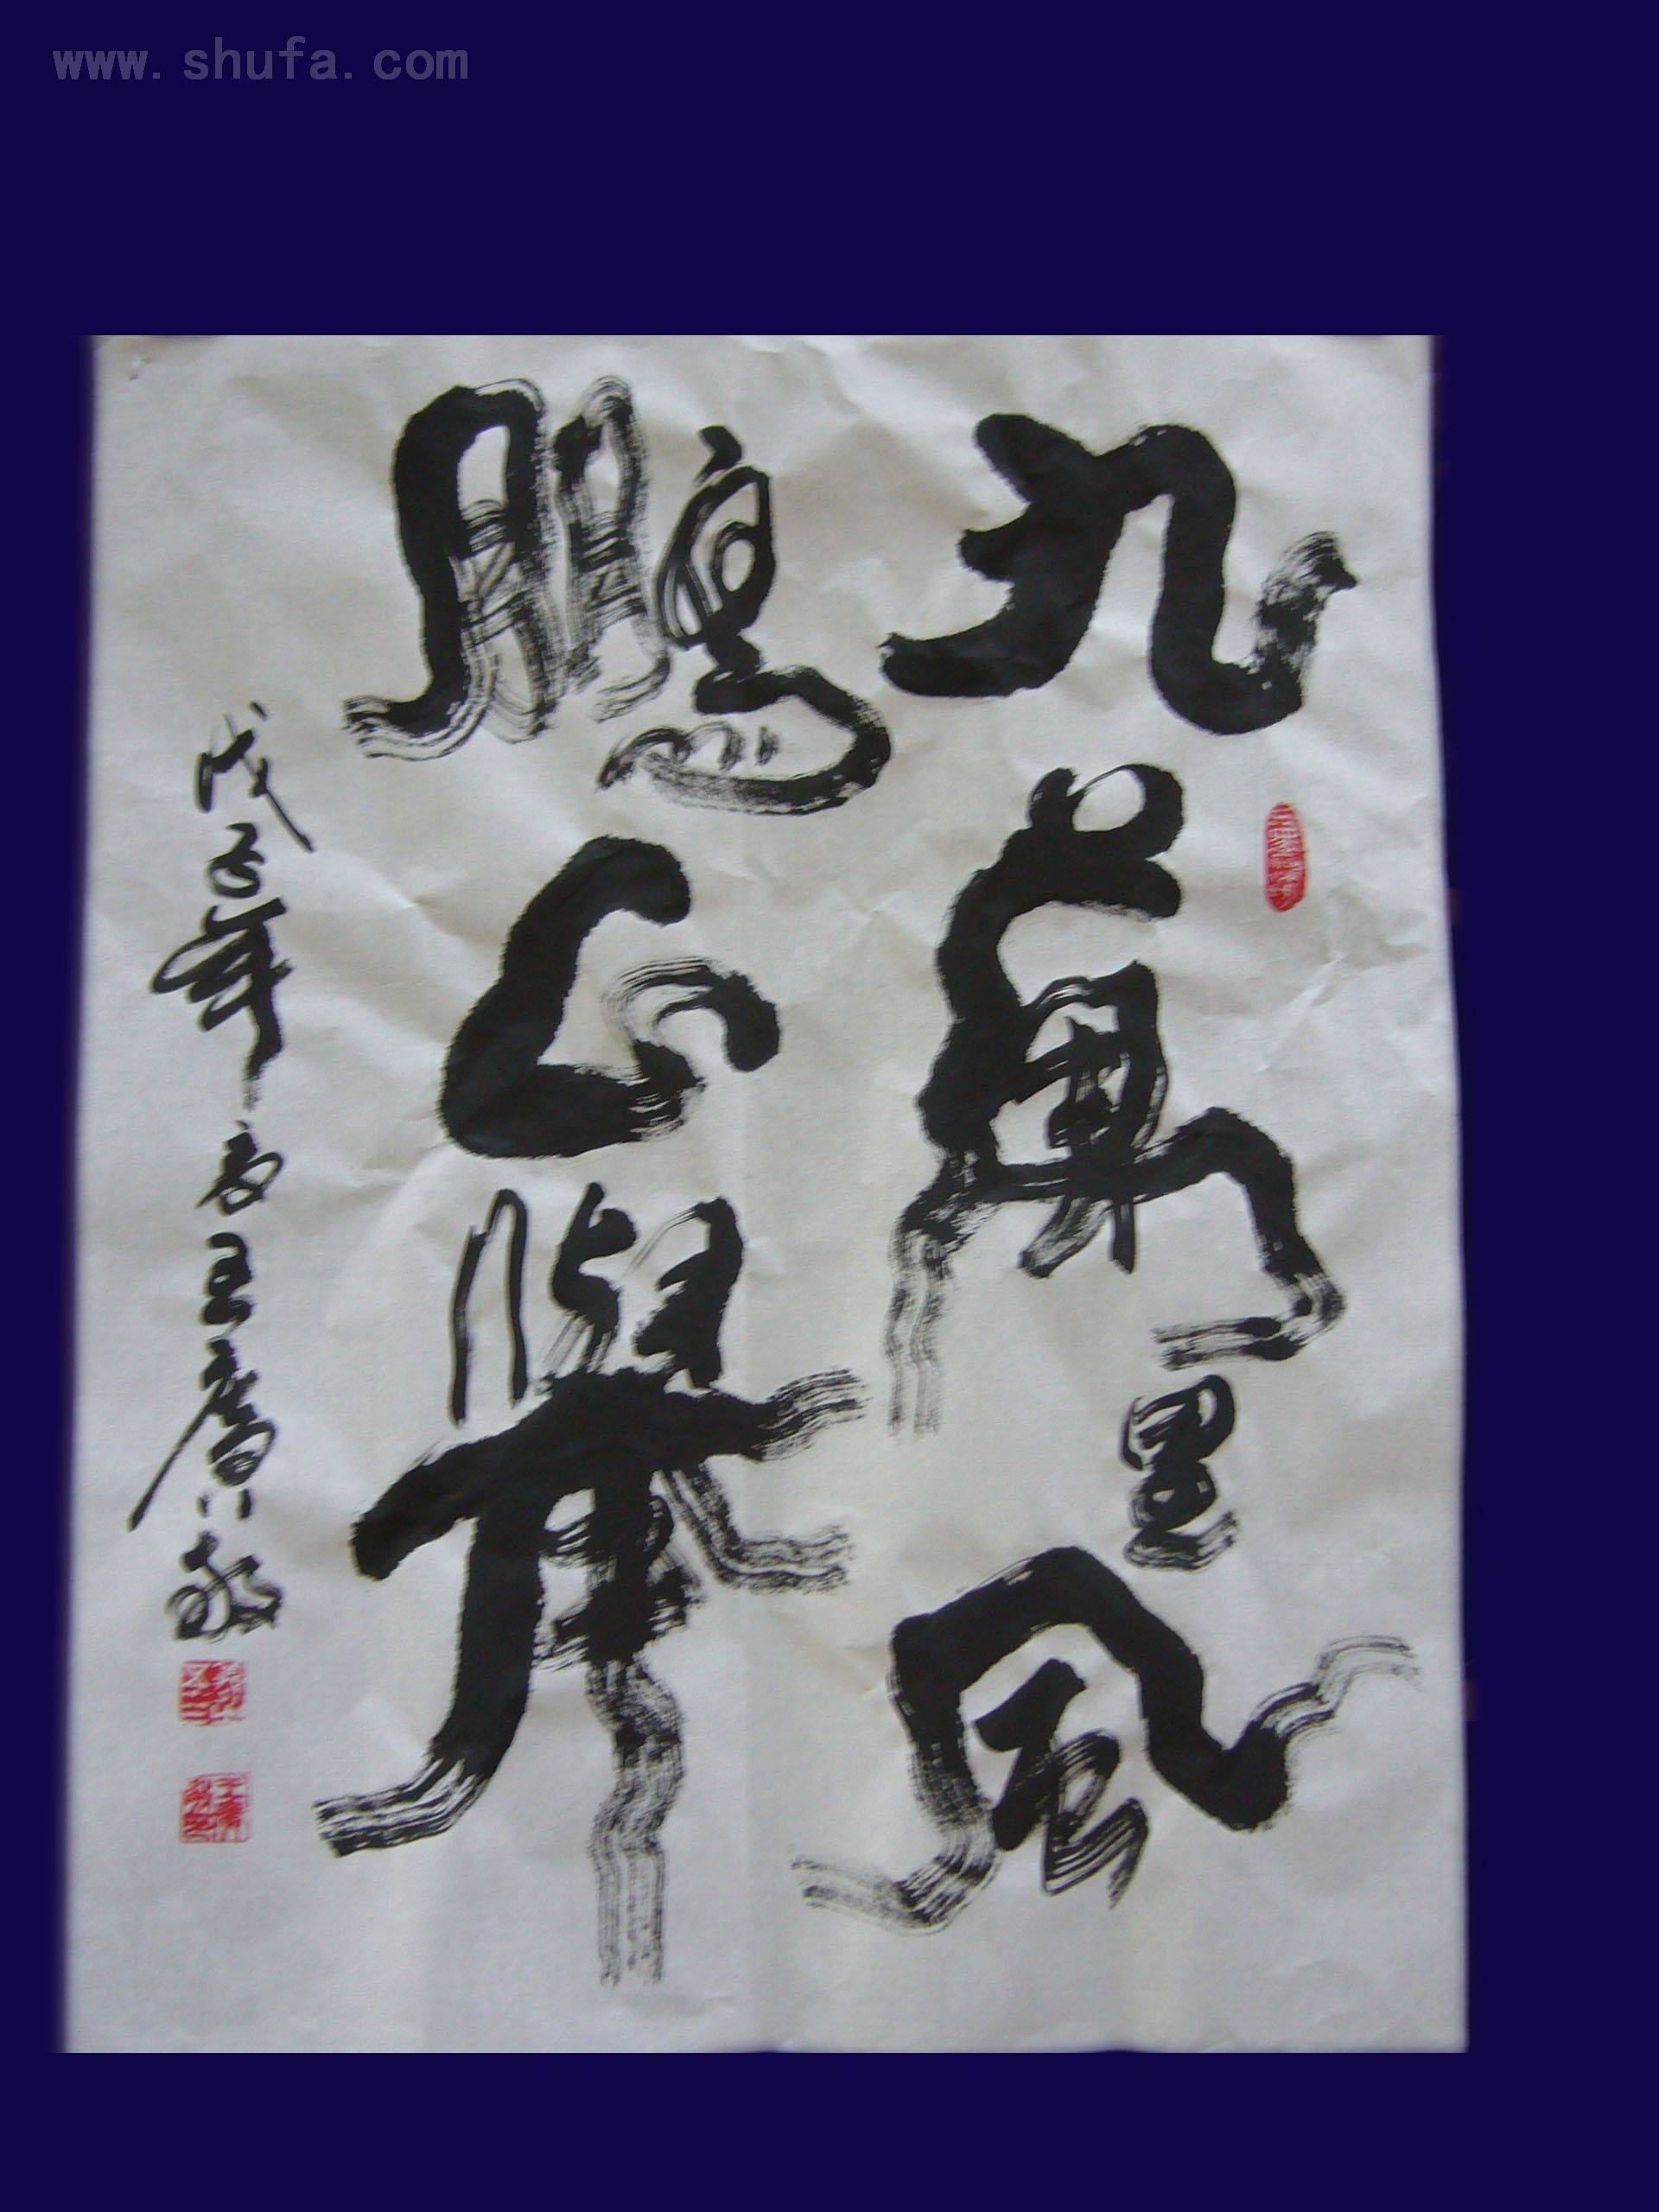 www.shufa.com
九萬里風
鵬正舉
戊子年 王廣